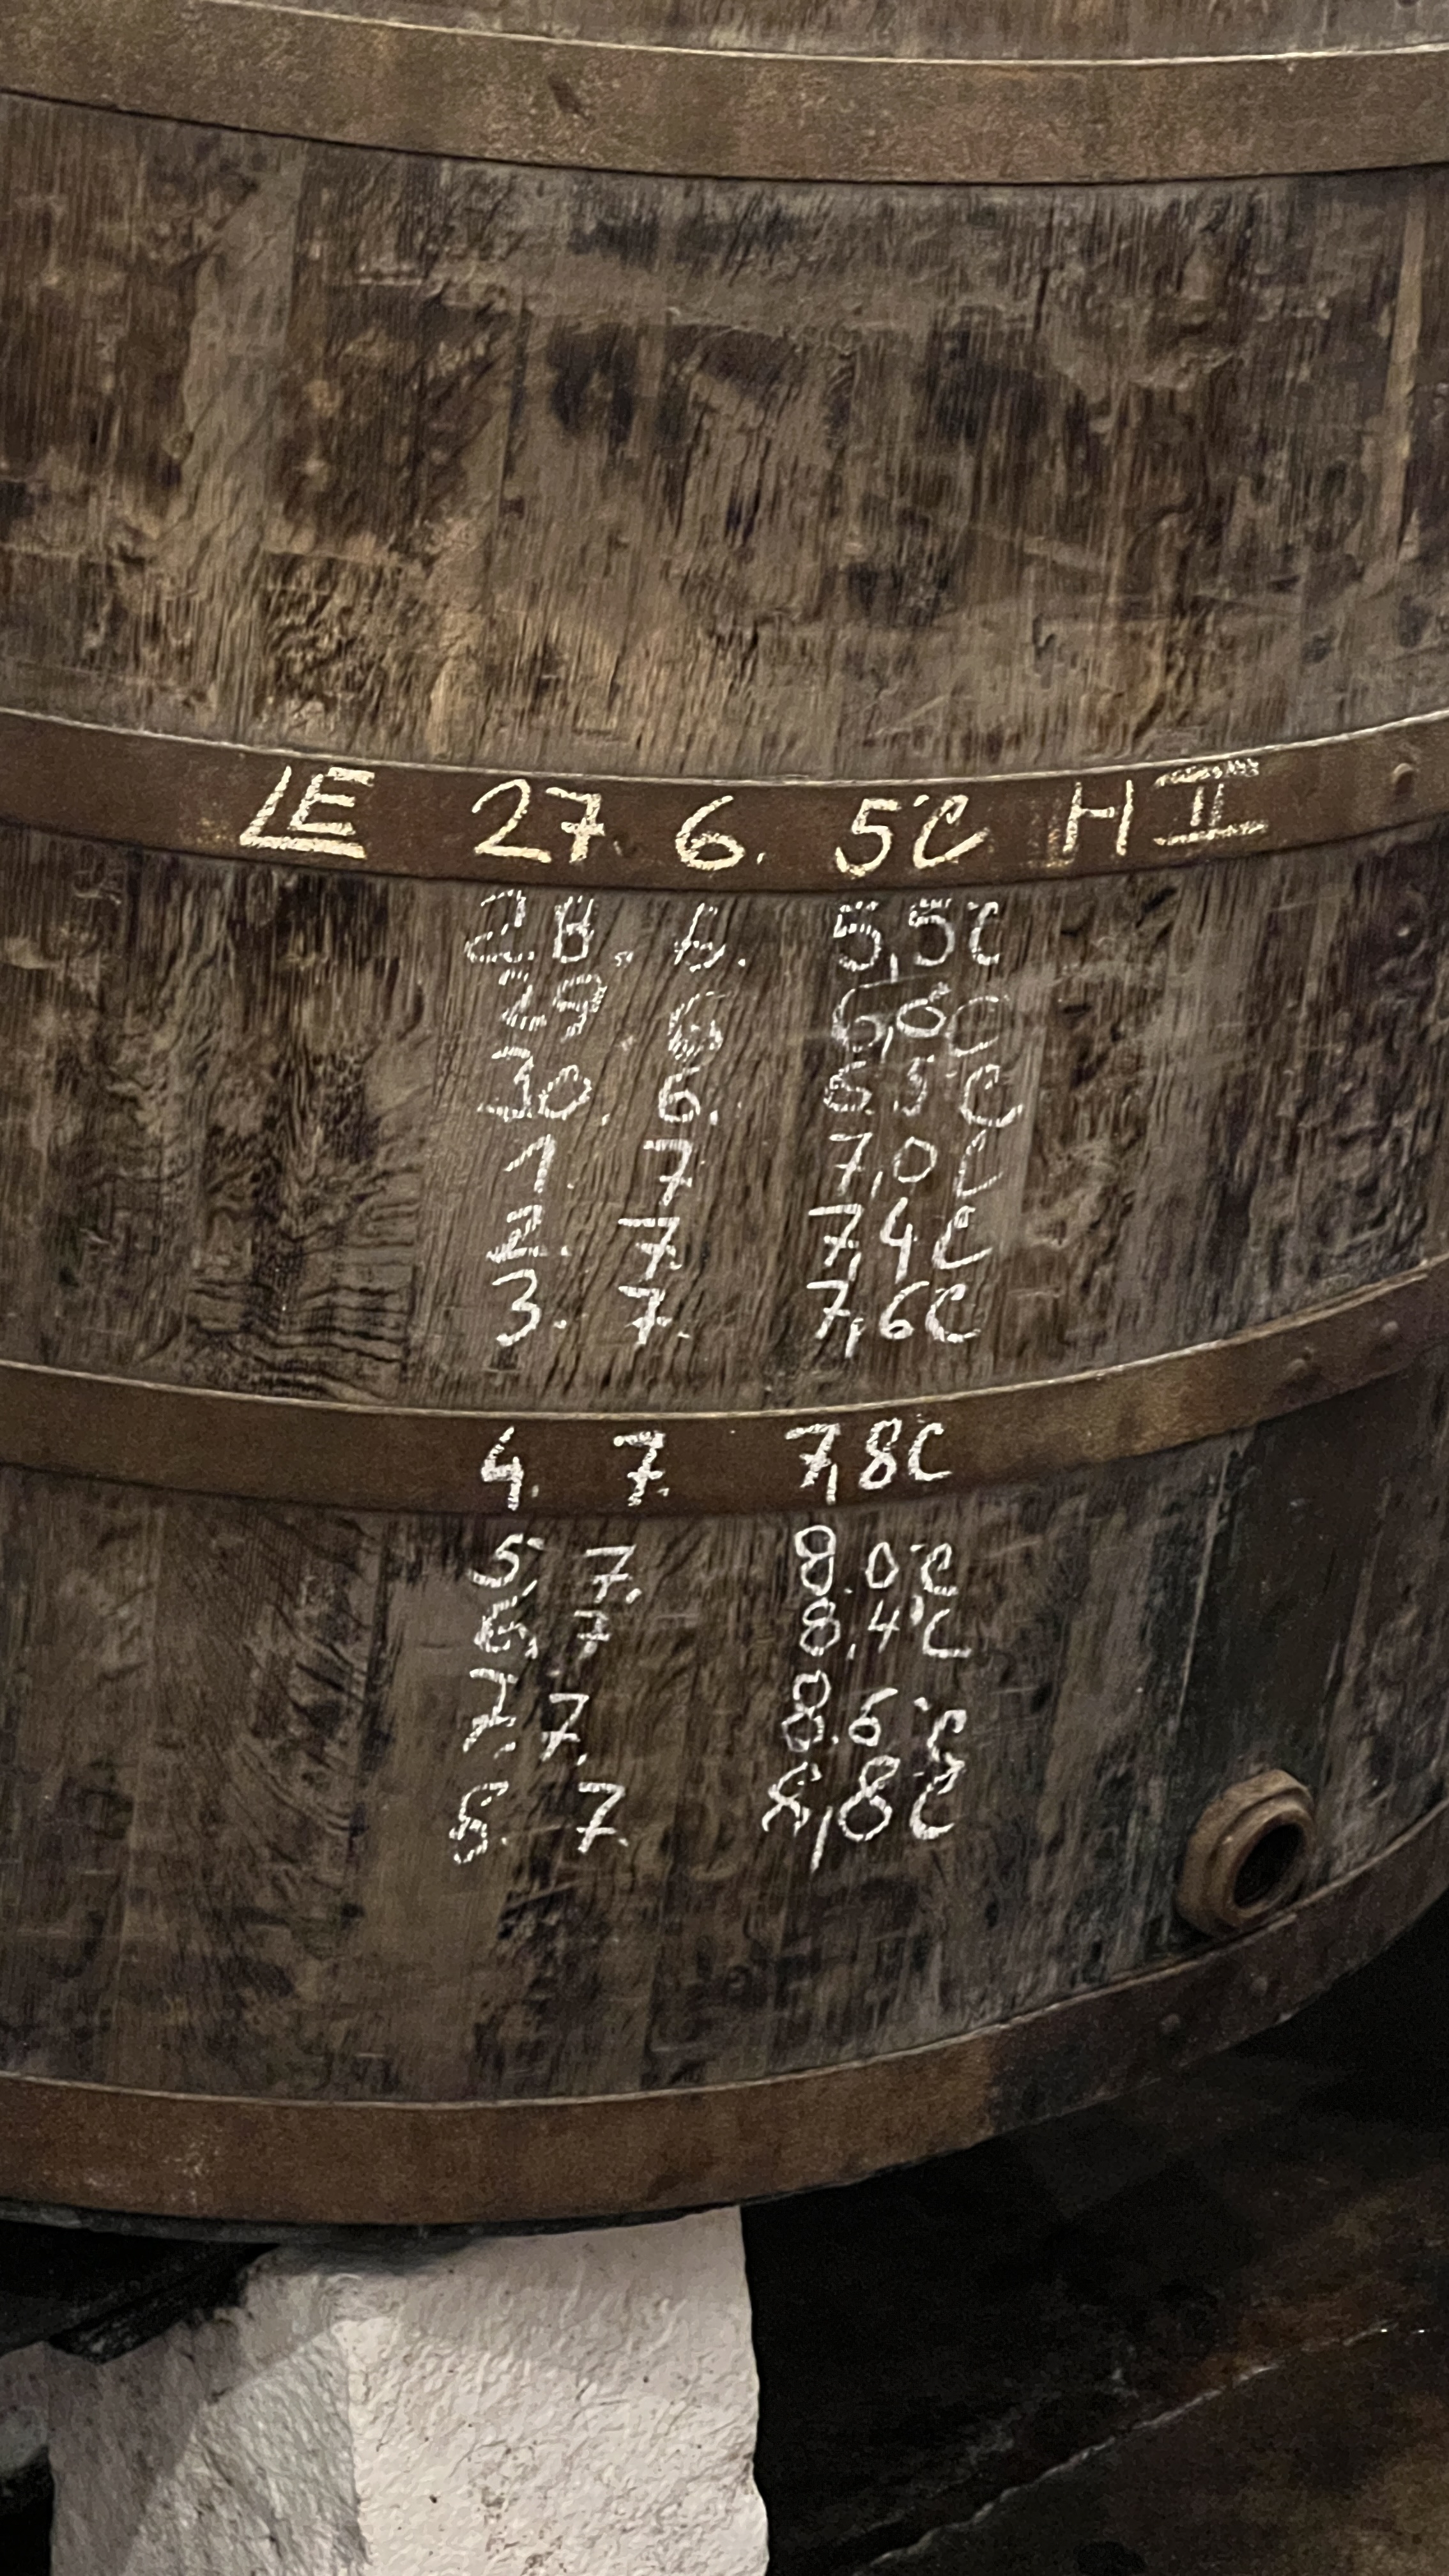 LE 27. 6. 5°C H II
28. 6. 5,5°C
29. 6 6,0°C
30. 6. 6.5°C
1. 7 7,0°C
2. 7. 7,4°C
3. 7. 7,6°C
4. 7. 7,8°C
5. 7. 8.0°C
6. 7 8,4°C
7. 7. 8.6°C
8. 7. 8,8°C